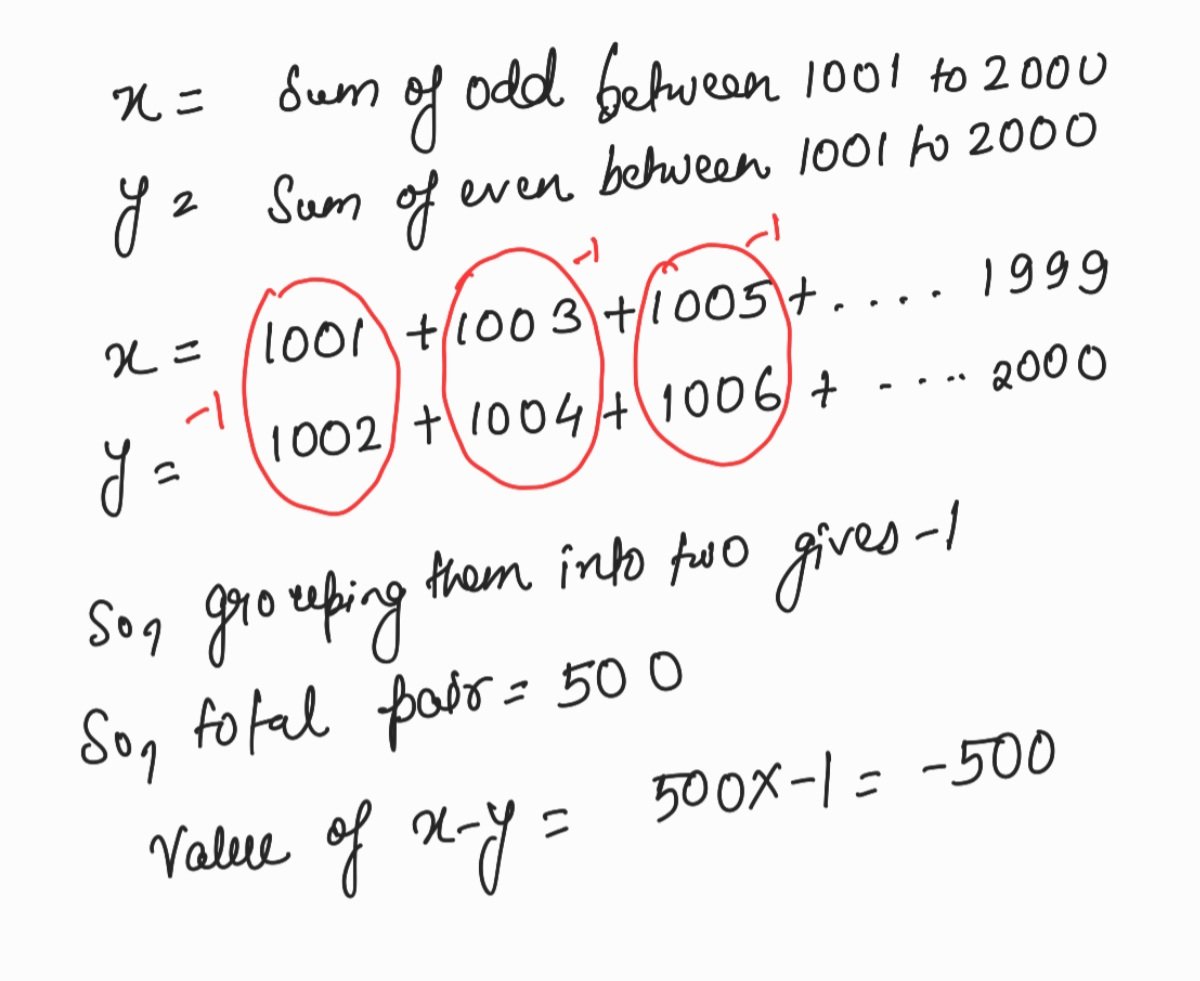 x = Sum of odd between 1001 to 2000
y = Sum of even between 1001 to 2000
-1 -1
x = 1001 + 1003 + 1005 + .... 1999
-1
y = 1002 + 1004 + 1006 + .... 2000
So, grouping them into two gives -1
So, total pair = 500
Value of x-y = 500x-1 = -500